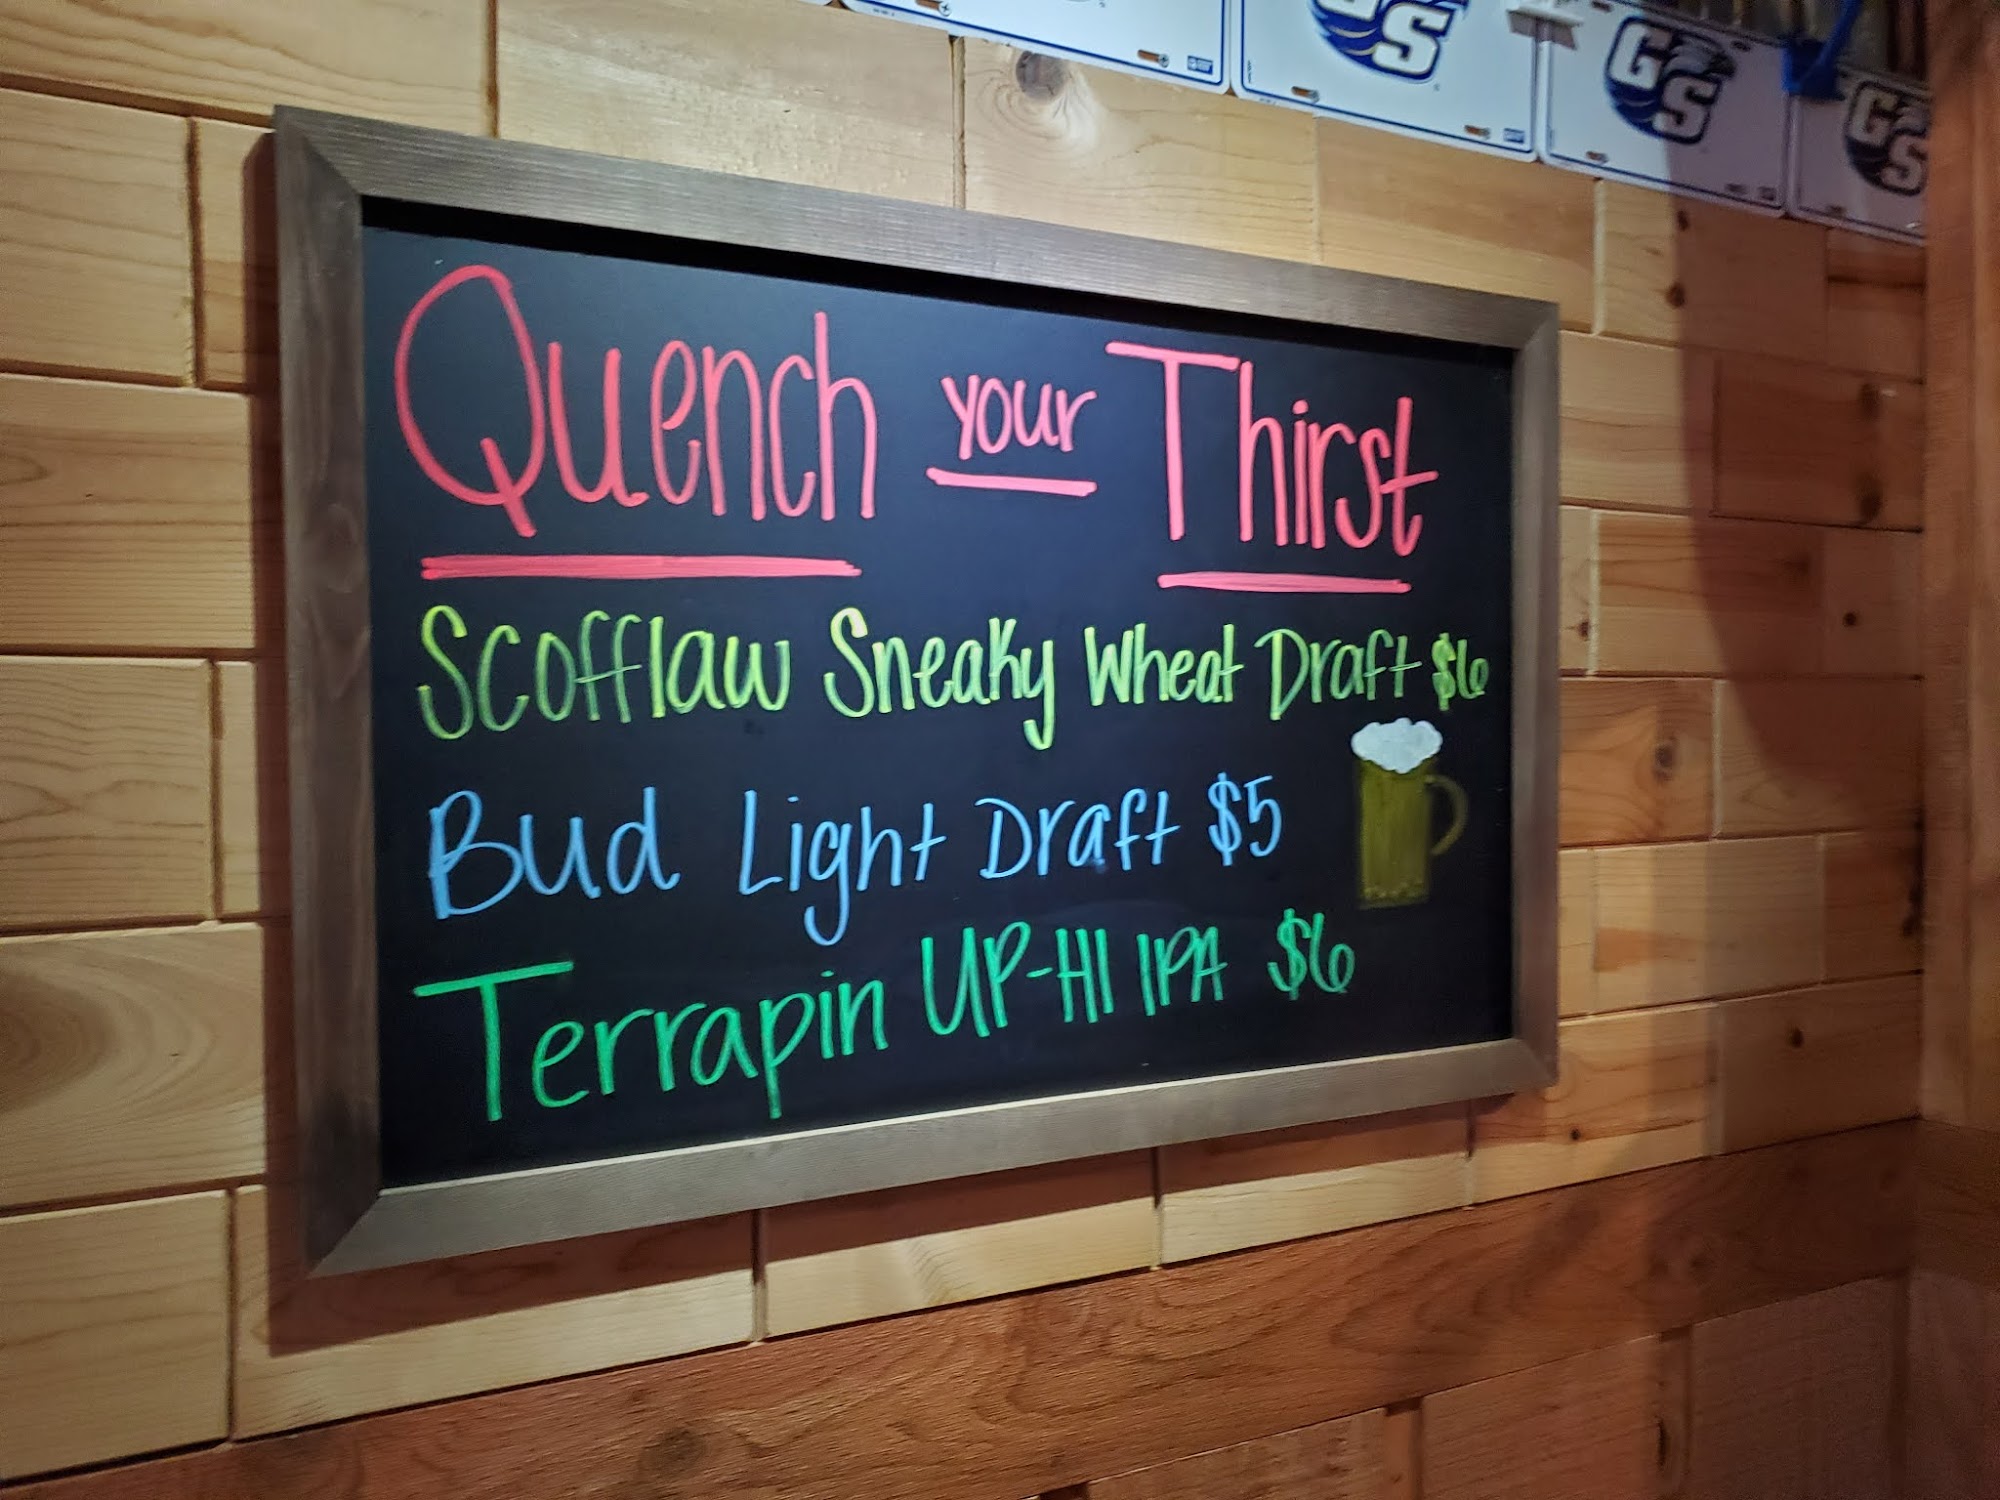 GS
GS
GS
Quench your Thirst
Scofflaw Sneaky Wheat Draft $6
Bud Light Draft $5
Terrapin UP-HI IPA $6